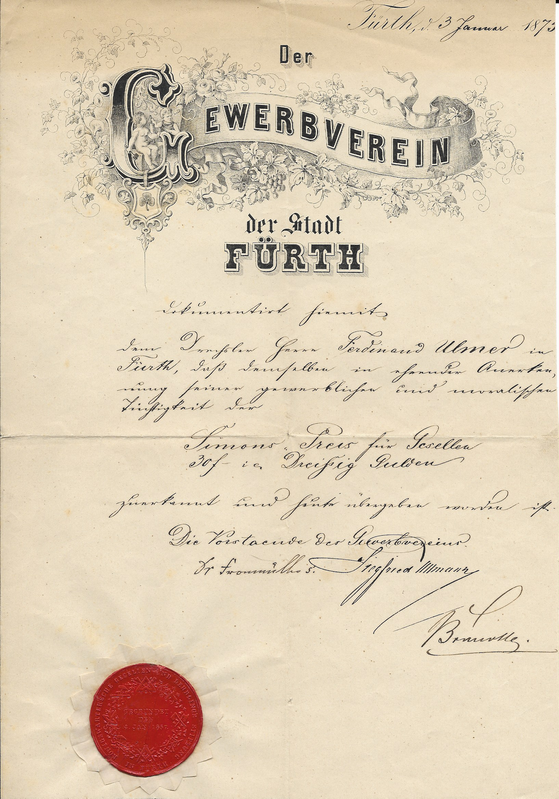 Fürth, d 3 Januar 1873
Der
GEWERBVEREIN
der Stadt
FÜRTH
dokumentirt hiemit
dem Drechsler Herrn Ferdinand Ulmer in
Fürth, daß demselben in ehrender Anerken,
nung seiner gewerblichen und moralischen
Tüchtigkeit der
Simons-Preis für Gesellen
30f Dreißig Gulden
zuerkannt und heute übergeben worden ist.
Die Vorstaende des Gewerbvereins.
Dr Fronmüller s. Siegfried Ullmann